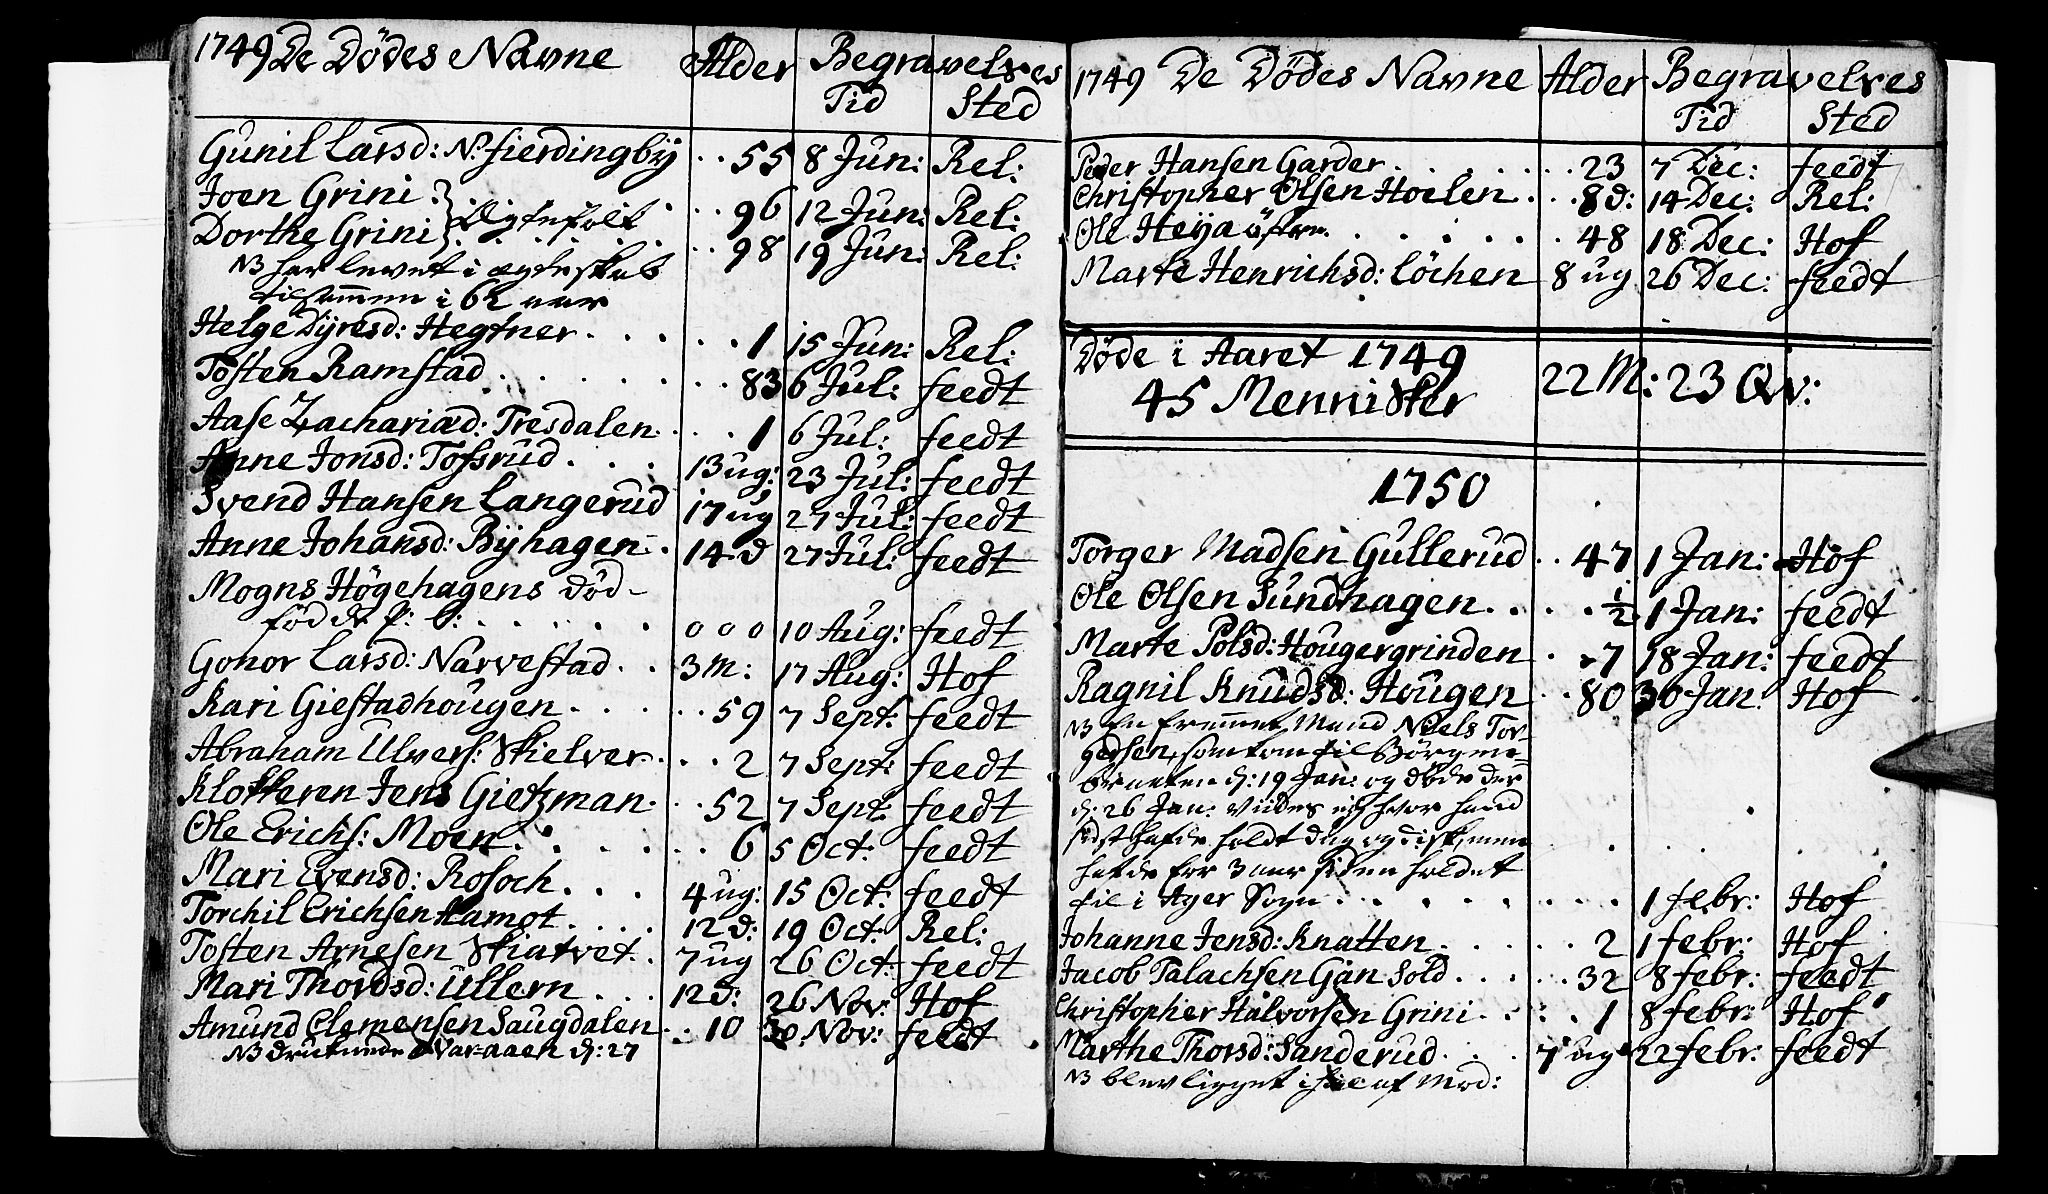 1749 De Dödes Navne Alder Begravelses
Tid Sted
Gunil Larsd: N: fierdingbÿ .. 55 8 Jun: Rel:
Joen Grini . . . 96 12 Jun: Rel:
Ægtefolk
Dorthe Grini . . . 98 19 Jun: Rel:
NB har levet i ægteskab
tilsammen i 62 aar
Helge Dÿresd: Hegtner . . . . . 1 15 Jun: Rel:
Tosten Ramstad . . . . . 83 6 Jul: feedt
Aase Zachariæd: Tresdalen . . . 1 6 Jul: feedt
Anne Jonsd: Tossrud . . . 13 ug: 23 Jul: feedt
Svend Hansen Langerud 17 ug 27 Jul: feedt
Anne Johansd: Bÿhagen . 14 d 27 Jul: feedt
Mogns Högehagens död-
födde P: b: . . . . . . 0 0 0 10 Aug: feedt
Gonor Larsd: Narvestad . . 3 M: 17 Aug: Hof
Kari Giestadhougen . . . . . 59 7 Sept: feedt
Abraham Ulvers: Skielver . . . 2 7 Sept: feedt
Klokkeren Jens Gietzman . . . 52 7 Sept: feedt
Ole Erichs: Moen . . . . . 6 5 Oct: feedt
Mari Evensd: Rosoch . . . 4 ug: 15 Oct: feedt
Torchil Erichsen Hamot . . . 12 d: 19 Oct: Rel:
Tosten Arnesen Skiatvet . 7 ug 26 Oct: feedt
Mari Thordsd: Ullern . . . 12 d: 26 Nov: Hof
Amund Clemensen Saugdalen . . 10 30 Nov: feedt
NB druknede i Var-aaen d: 27
1749 De Dödes Navne Alder Begravelses
Tid Sted
Peder Hansen Garder . . . . . . 23 7 Dec: feedt
Christopher Olsen Hoelen . . . 8 d: 14 Dec: Rel:
Ole Heÿa östre . . . . . 48 18 Dec: Hof
Marte Henrichsd: Löchen 8 ug 26 Dec: feedt
Döde i Aaret 1749
45 Mennisker 22 M: 23 Qv:
1750
Torger Madsen Gullerud . . 47 1 Jan: Hof
Ole Olsen Sundhagen . . . . . 1/2 1 Jan: feedt
Marte Polsd: Hougergrinden . . 7 18 Jan: feedt
Ragnil Knudsd: Hougen . . 80 30 Jan: Hof
NB En fremmet Mand Niels Tor-
gersen, som kom til Börgme-
d: 19 Jan: og döde der
d: 26 Jan: viides ej hvor hand
sidst hafde holdt dug og disk, men
hafde for 3 aar siden holdet
til i Ager Sogn . . . . . . . . 1 febr: Hof
Johanne Jensd: Knatten . . . . . 2 1 febr: Hof
Jacob Talachsen Gån Sold . . . . . 32 8 febr: feedt
Christopher Halvorsen Grini . . . . 1 8 febr: Hof
Marthe Thorsd: Sanderud . . . 7 ug 22 febr: feedt
NB blev ligget ihiel af Mod: